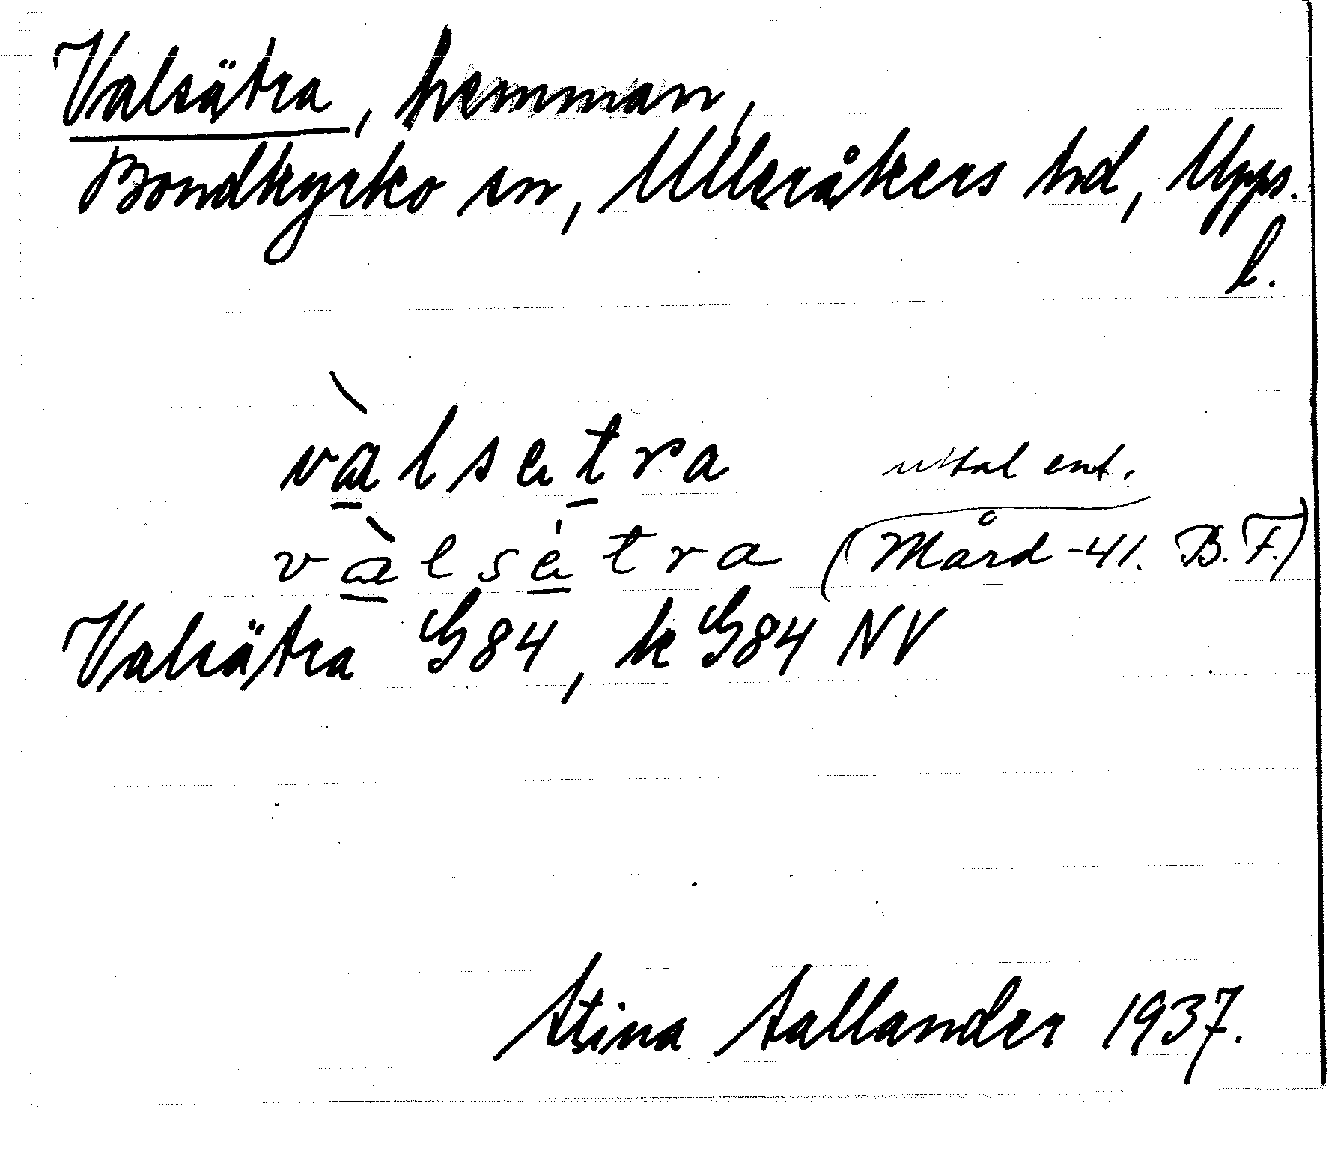 Valsätra, hemman,
Bondkyrko sn, Ulleråkers hd, Upps.
l.
vàlsetra uttal enl.
vàlsétra (Mård -41. B.F.)
Valsätra G84, k G84 NV
Stina Sallander 1937.